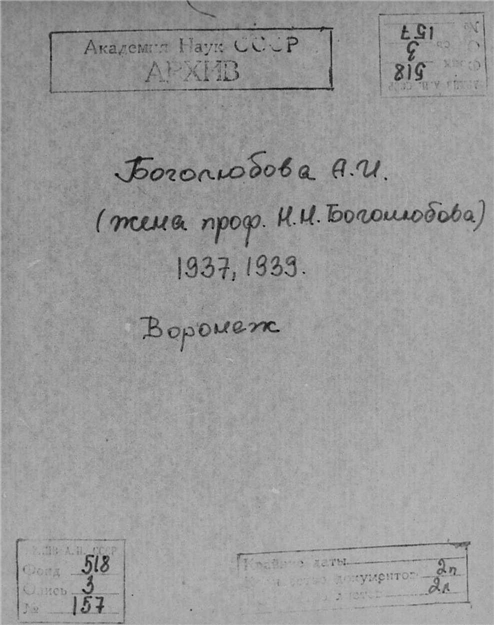 Академия Наук СССР
АРХИВ
№ 157
3
518
Боголюбова А.И.
(жена проф. Н.Н. Боголюбова)
1937, 1939.
Воронеж
Фонд 518
Опись 3
№ 157
Крайние даты
документов 2п
2л